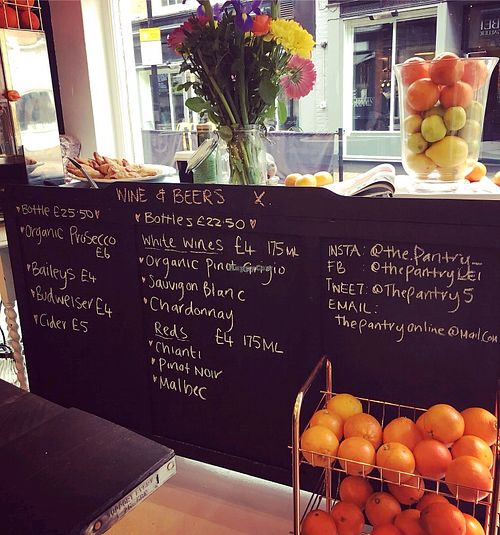 WINE & BEERS X.
Bottle £25.50
Organic Prosecco
£6
Baileys £4
Budweiser £4
Cider £5
Bottles £22.50
White Wines £4 175ML
Organic Pinot Grigio
Sauvign Blanc
Chardonnay
Reds £4 175ML
Chianti
Pinot Noir
Malbec
INSTA: @the.Pantry_
FB : @thepantryLEI
TWEET: @Thepantry5
EMAIL:
Thepantryonline@Mail.Com